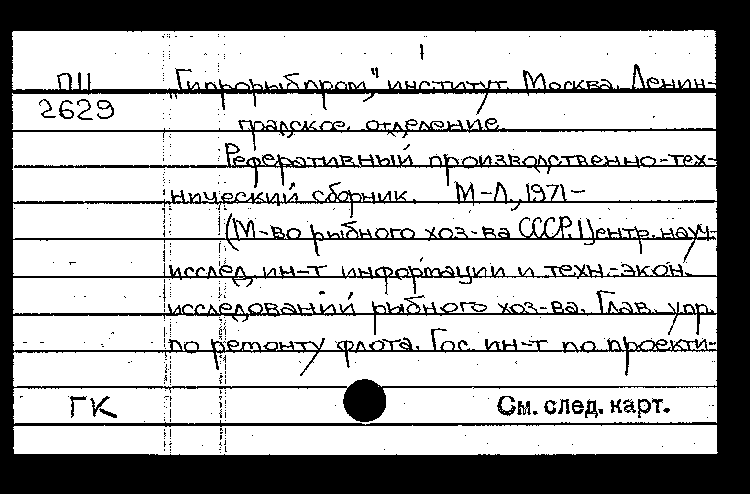 1
П11
2629
„Гипрорыбпром," институт. Москва. Ленин-
градское отделение.
Реферативный производственно-тех-
нический сборник. М-Л., 1971-
(М-во рыбного хоз-ва СССР. Центр. науч.
исслед. ин-т информации и техн.-экон.
исследований рыбного хоз-ва. Глав. упр.
по ремонту флота. Гос. ин-т по проекти-
ГК
См. след. карт.